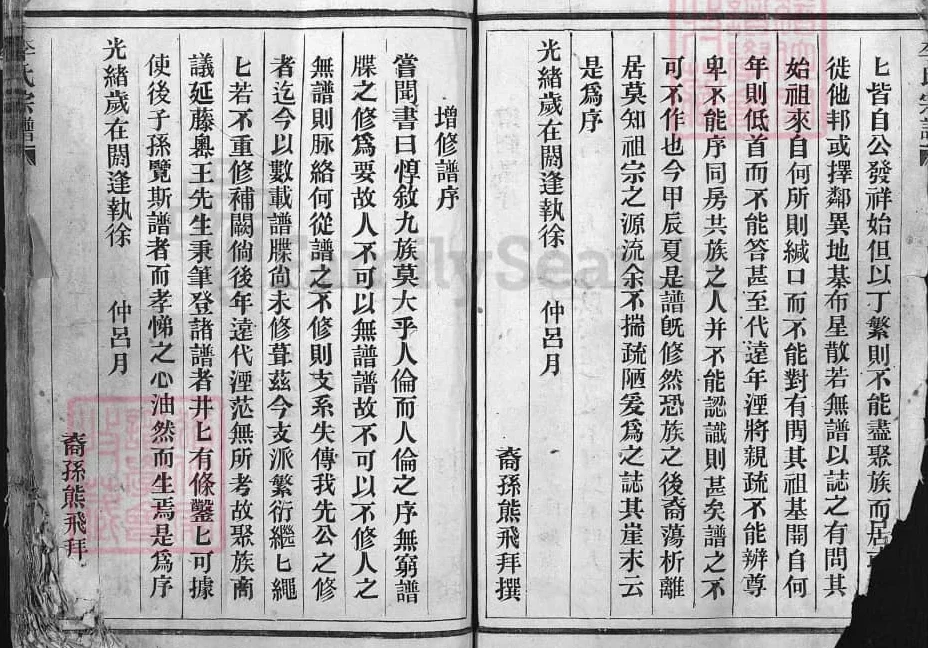 匕皆自公發祥始但以丁繁則不能盡聚族而居
徙他邦或擇鄰異地棊布星散若無譜以誌之有問其
始祖來自何所則緘口而不能對有問其祖基開自何
年則低首而不能答甚至代遠年湮將親疏不能辨尊
卑不能序同房共族之人并不能認識則甚矣譜之不
可不作也今甲辰夏是譜旣修然恐族之後裔蕩析離
居莫知祖宗之源流余不揣疏陋爰為之誌其崖末云
是為序
光緒歲在閼逢執徐 仲呂月 裔孫熊飛拜撰
增修譜序
嘗聞書曰惇敘九族莫大乎人倫而人倫之序無窮譜
牒之修為要故人不可以無譜譜故不可以不修人之
無譜則脉絡何從譜之不修則支系失傳我先公之修
者迄今以數載譜牒尙未修葺茲今支派繁衍繼匕繩
匕若不重修補闕倘後年遠代湮茫無所考故聚族商
議延藤輿王先生秉筆登諸譜者井匕有條鑿匕可據
使後子孫覽斯譜者而孝悌之心油然而生焉是為序
光緒歲在閼逢執徐 仲呂月 裔孫熊飛拜
李氏宗譜
FamilySearch